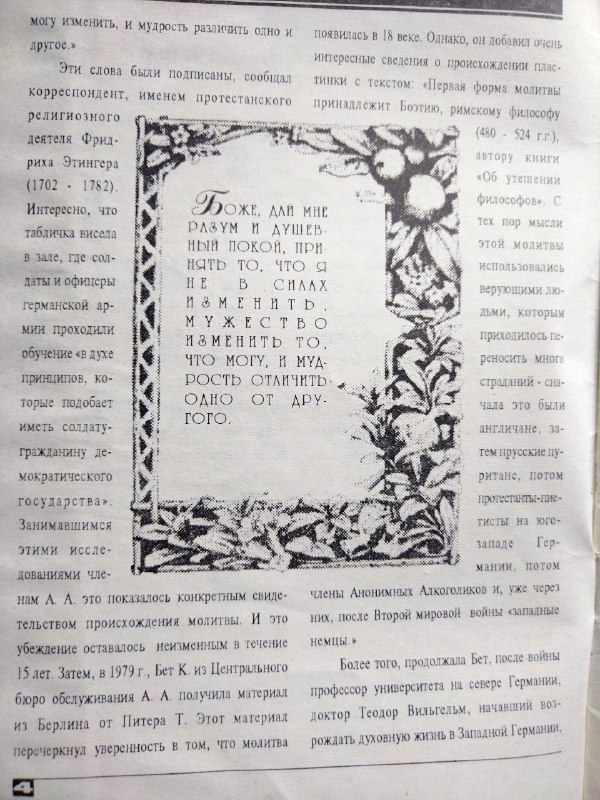 могу изменить, и мудрость различить одно и
другое.»
Эти слова были подписаны, сообщал
корреспондент, именем протестанского
религиозного
деятеля Фрид-
риха Этингера
(1702 - 1782).
Интересно, что
табличка висела
в зале, где сол-
даты и офицеры
германской ар-
мии проходили
обучение «в духе
принципов, ко-
торые подобает
иметь солдату-
гражданину де-
мократического
государства».
Занимавшимся
этими иссле-
дованиями чле-
нам А. А. это показалось конкретным свиде-
тельством происхождения молитвы. И это
убеждение оставалось неизменным в течение
15 лет. Затем, в 1979 г., Бет К. из Центрального
бюро обслуживания А. А. получила материал
из Берлина от Питера Т. Этот материал
перечеркнул уверенность в том, что молитва
Боже, дай мне
разум и душев-
ный покой, при-
нять то, что я
не в силах
изменить,
мужество
изменить то,
что могу, и муд-
рость отличить
одно от дру-
гого.
появилась в 18 веке. Однако, он добавил очень
интересные сведения о происхождении плас-
тинки с текстом: «Первая форма молитвы
принадлежит Боэтию, римскому философу
(480 - 524 г.г.),
автору книги
«Об утешении
философов». С
тех пор мысли
этой молитвы
использовались
верующими лю-
дьми, которым
приходилось пе-
реносить много
страданий - сна-
чала это были
англичане, за-
тем прусские пу-
ритане, потом
протестанты-пие-
тисты на юго-
западе Гер-
мании, потом
члены Анонимных Алкоголиков и, уже через
них, после Второй мировой войны «западные
немцы.»
Более того, продолжала Бет, после войны
профессор университета на севере Германии,
доктор Теодор Вильгельм, начавший воз-
рождать духовную жизнь в Западной Германии,
4